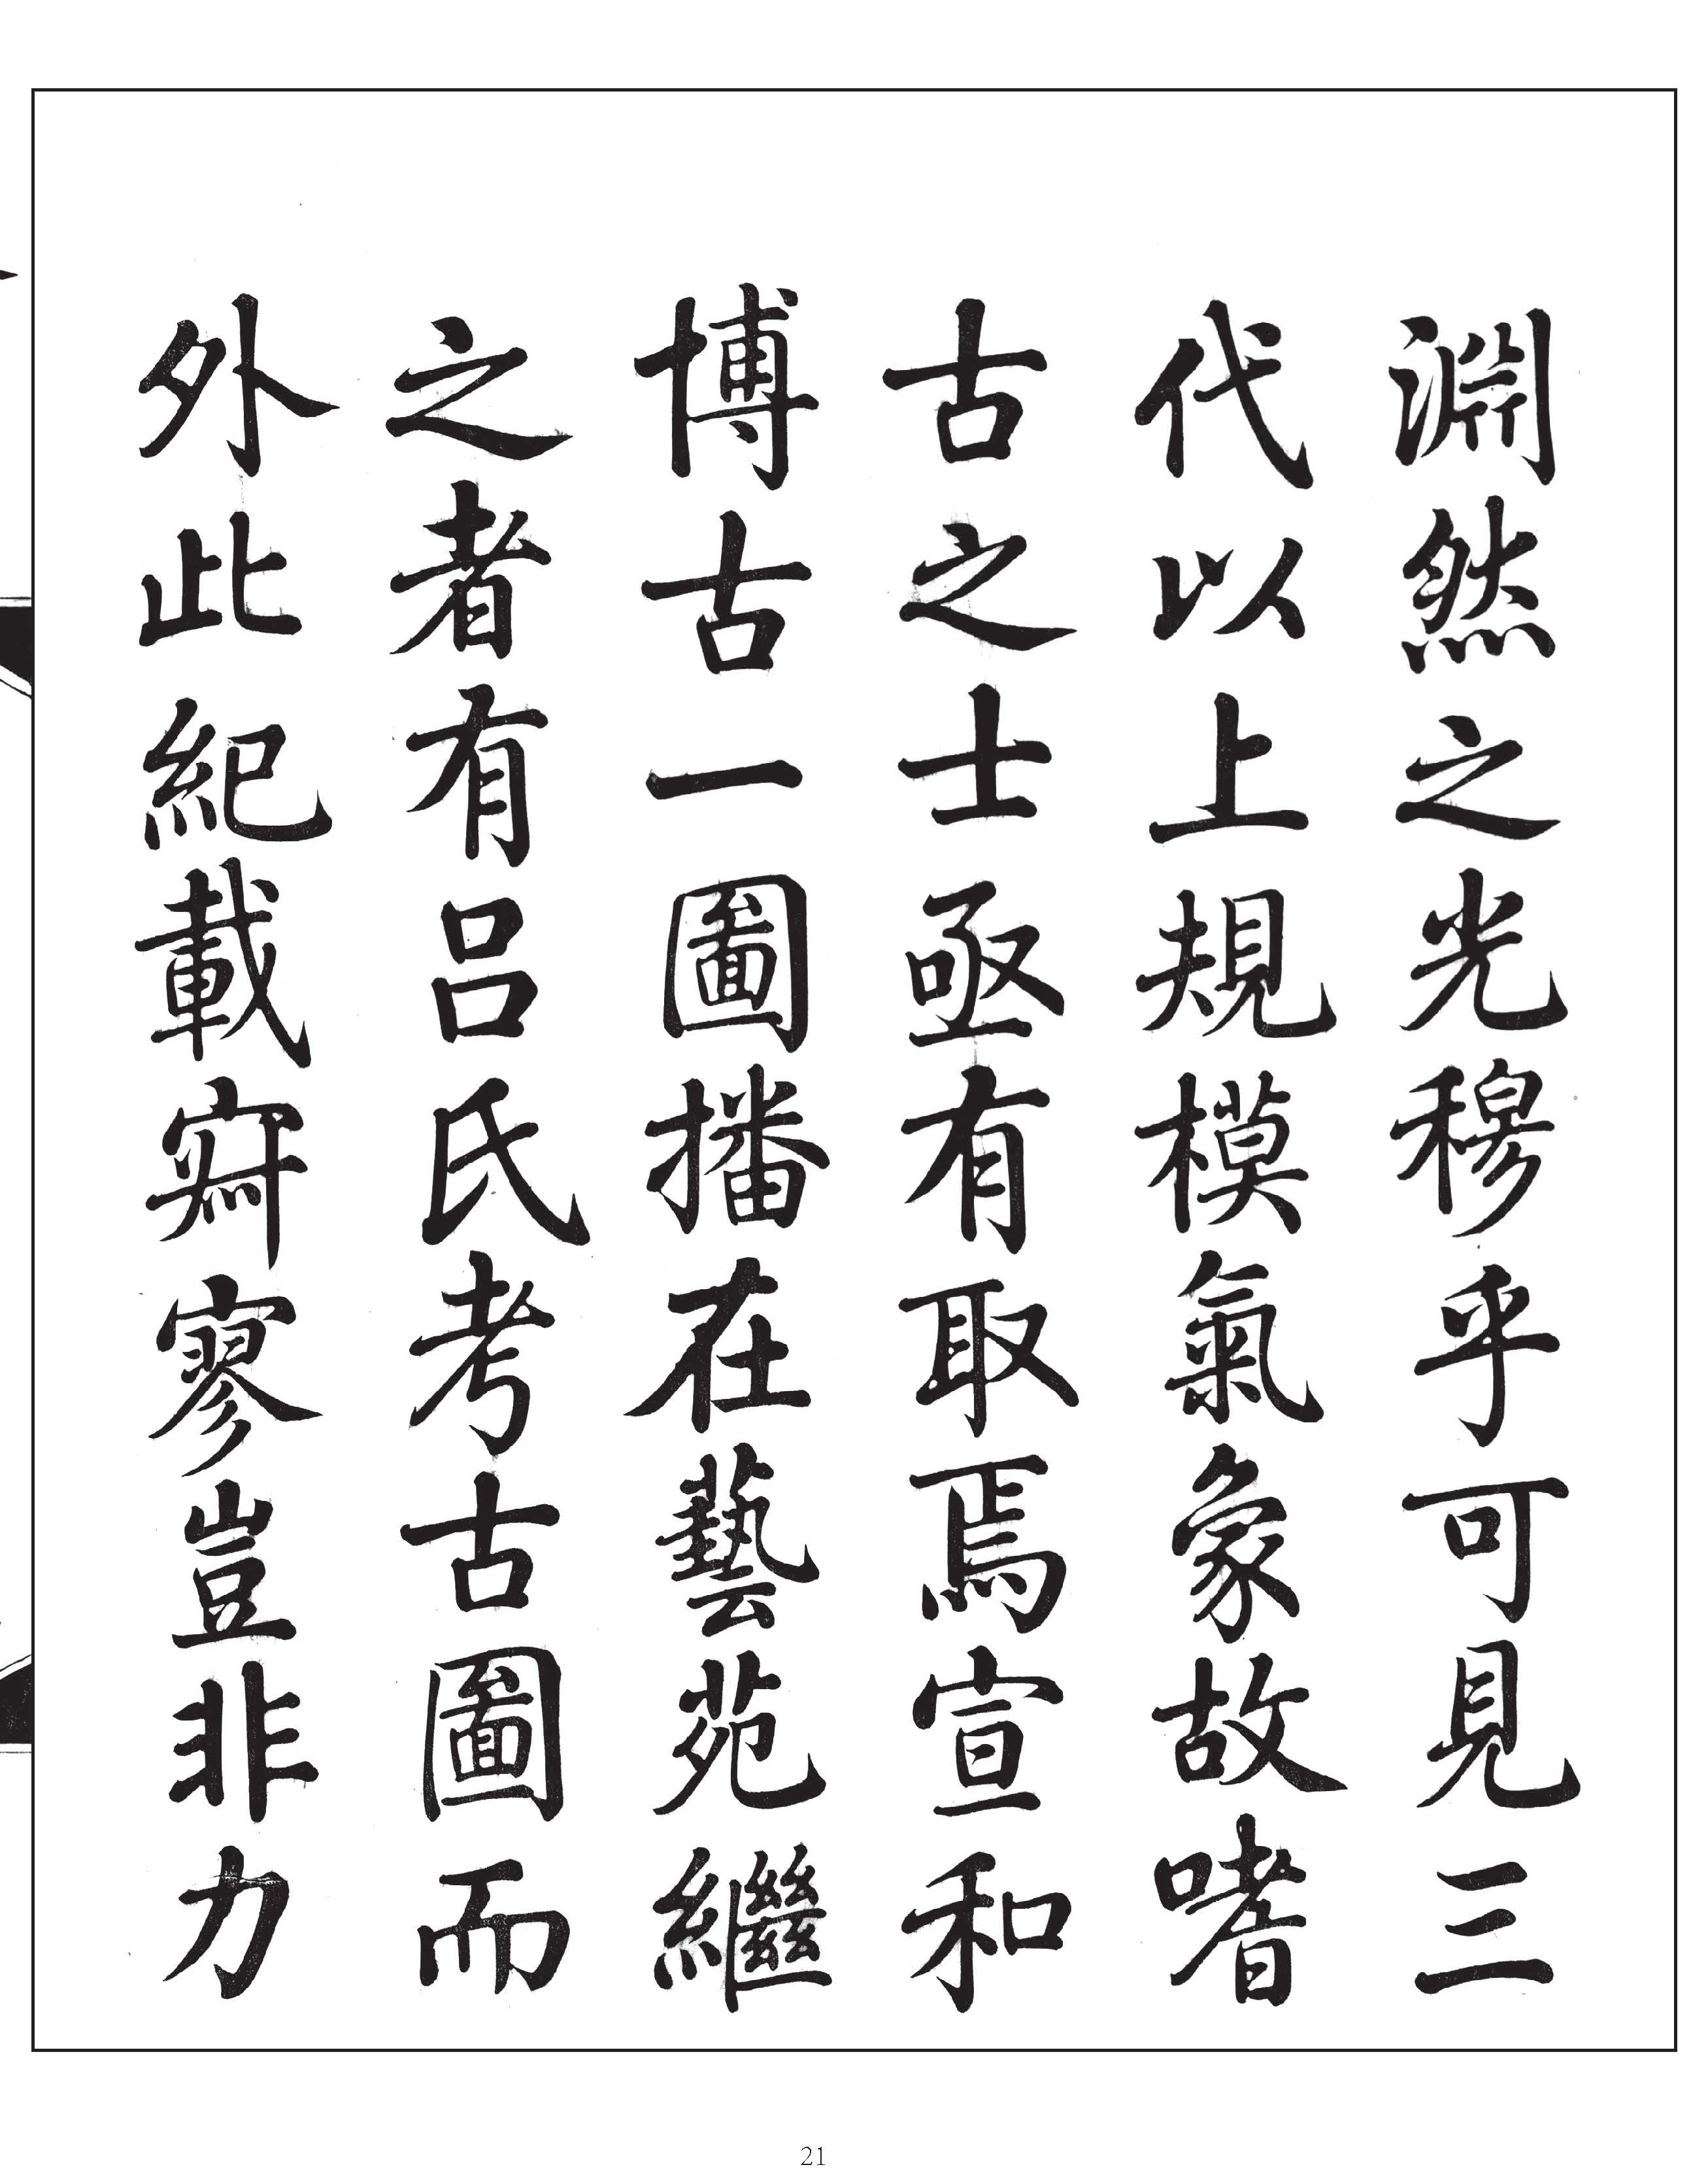 淵然之光穆乎可見三
代以上規模氣象故嗜
古之士亟有取焉宣和
博古一圖播在藝苑繼
之者有呂氏考古圖而
外此紀載寂寥豈非力
21